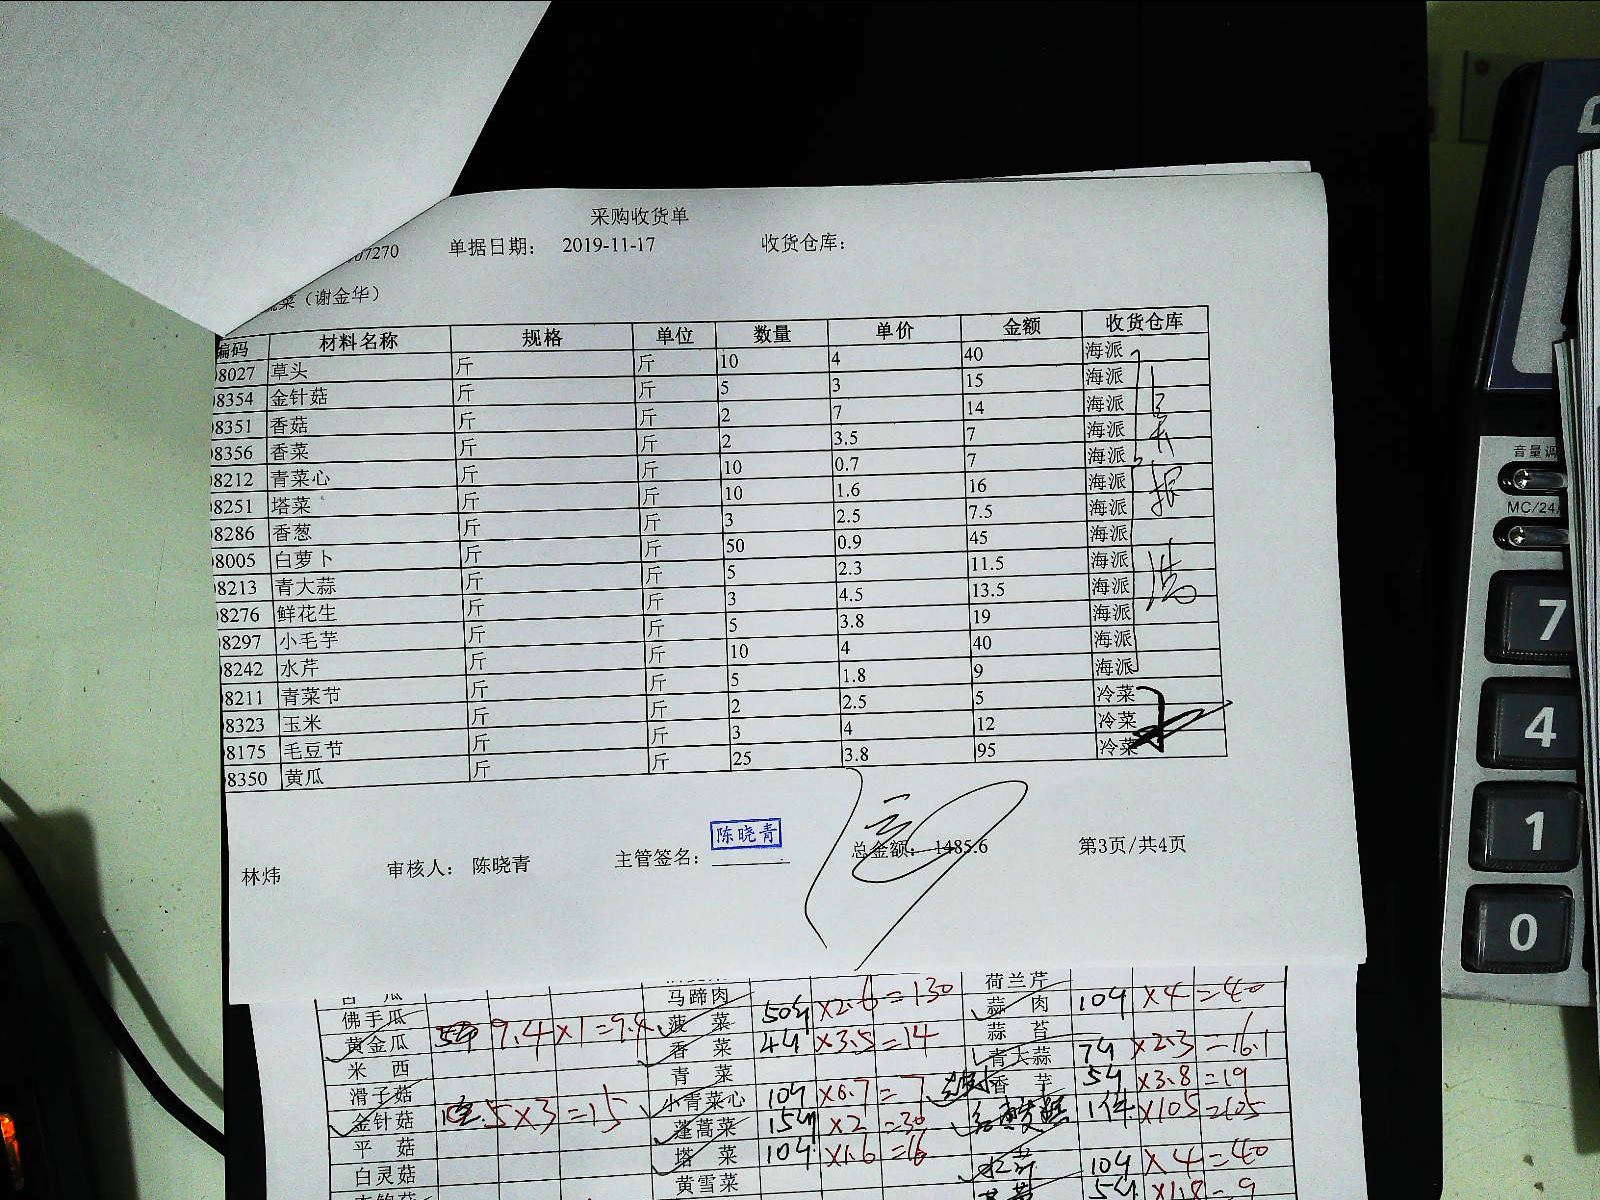 采购收货单
07270 单据日期： 2019-11-17 收货仓库：
蔬菜（谢金华）
编码 材料名称 规格 单位 数量 单价 金额 收货仓库
08027 草头 斤 斤 10 4 40 海派
08354 金针菇 斤 斤 5 3 15 海派
08351 香菇 斤 斤 2 7 14 海派
08356 香菜 斤 斤 2 3.5 7 海派
08212 青菜心 斤 斤 10 0.7 7 海派
08251 塔菜 斤 斤 10 1.6 16 海派
08286 香葱 斤 斤 3 2.5 7.5 海派
08005 白萝卜 斤 斤 50 0.9 45 海派
08213 青大蒜 斤 斤 5 2.3 11.5 海派
08276 鲜花生 斤 斤 3 4.5 13.5 海派
08297 小毛芋 斤 斤 5 3.8 19 海派
08242 水芹 斤 斤 10 4 40 海派
08211 青菜节 斤 斤 5 1.8 9 海派
08323 玉米 斤 斤 2 2.5 5 冷菜
08175 毛豆节 斤 斤 3 4 12 冷菜
08350 黄瓜 斤 斤 25 3.8 95 冷菜
林炜 审核人： 陈晓青 主管签名： 陈晓青 总金额： 1485.6 第3页/共4页
马蹄肉 荷兰芹
佛手瓜 菠菜 50斤 ×2.6=130 蒜肉 10斤 ×4=40
黄金瓜 9.4×1=9.4 香菜 4斤 ×3.5=14 蒜苔
米西 青菜 青大蒜 7斤 ×2.3=16.1
滑子菇 小青菜心 10斤 ×0.7=7 香芋 5斤 ×3.8=19
金针菇 5×3=15 蓬蒿菜 15斤 ×2=30 1件 ×105=105
平菇 塔菜 10斤 ×1.6=16 水芹 10斤 ×4=40
白灵菇 黄雪菜 5斤 ×1.8=9
音量调
MC/24
7
4
1
0